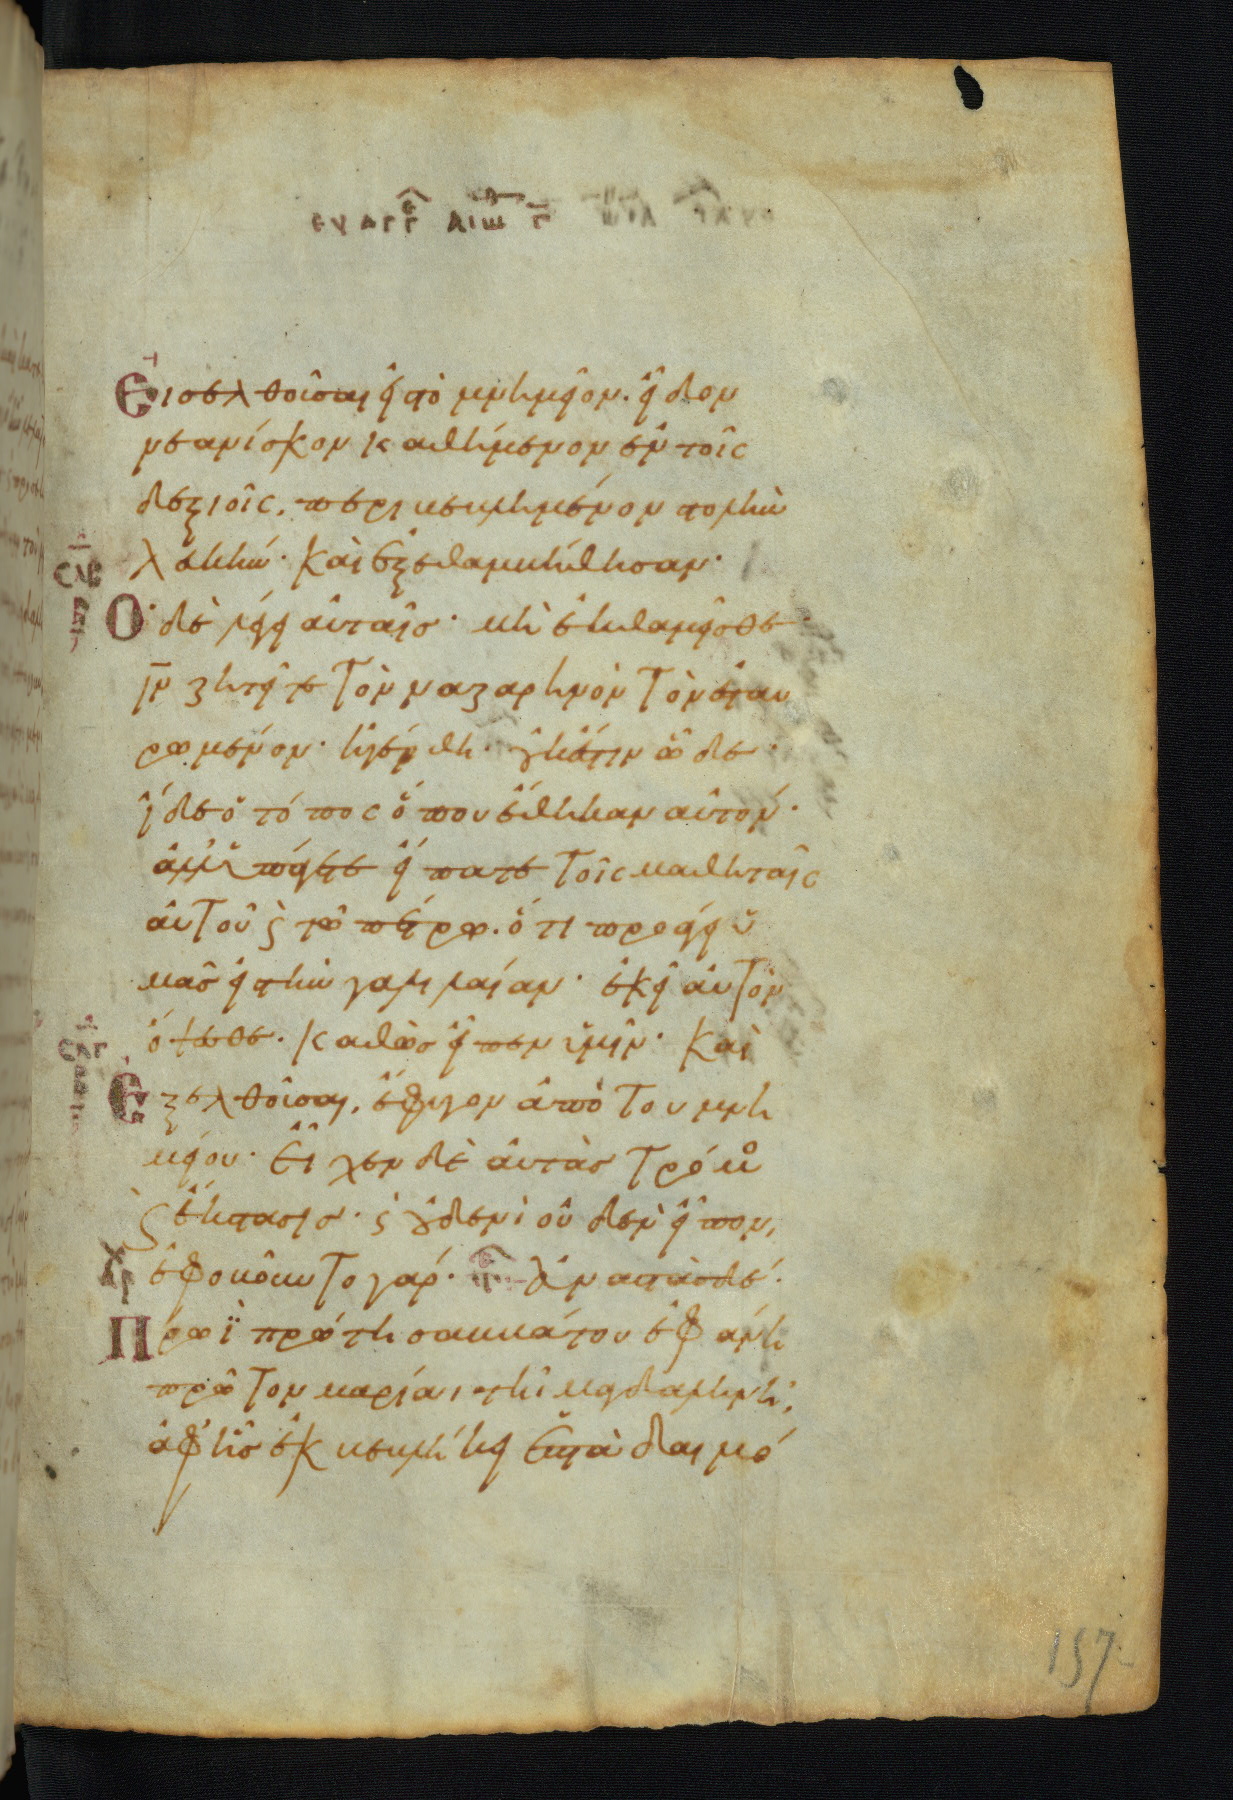 ευαγγε εωθ γ
Εισελθοῦσαι εἰς τὸ μνημεῖον. εἶδον
νεανίσκον καθήμενον ἐν τοῖς
δεξιοῖς, περιβεβλημένον στολὴν
λευκήν· Καὶ ἐξεθαμβήθησαν·
Ὁ δὲ λέγει αὐταῖς· μὴ ἐκθαμβεῖσθε
ιν ζητεῖτε Τὸν ναζαρηνὸν Τὸν ἐσταυ
ρωμένον· ἠγέρθη· οὐκ ἔστιν ὧδε·
ἴδε ὁ τόπος ὅπου ἔθηκαν αὐτόν·
ἀλλ' ὑπάγετε εἴπατε Τοῖς μαθηταῖς
αὐτοῦ ϛ τῷ πέτρω. ὅτι προάγει ὑ
μᾶς εἰς τὴν γαλιλαίαν· ἐκεῖ αὐτὸν
ὄψεσθε· καθὼς εἶπεν ὑμῖν· Καὶ
Ἐξελθοῦσαι, ἔφυγον ἀπὸ Του μνη
μείου· Εἶχεν δὲ αὐτὰς Τρόμος
ϛ ἔκστασις· ϛ οὐδενὶ οὐδὲν εἶπον,
ἐφοβοῦντο γάρ· Ἀναστὰς δέ·
Πρωῒ πρώτη σαββάτου ἐφάνη
πρῶτον μαρίαι τῆ μαγδαληνῆ,
ἀφ' ἧς ἐκβεβλήκει ἑπτὰ δαιμό
157